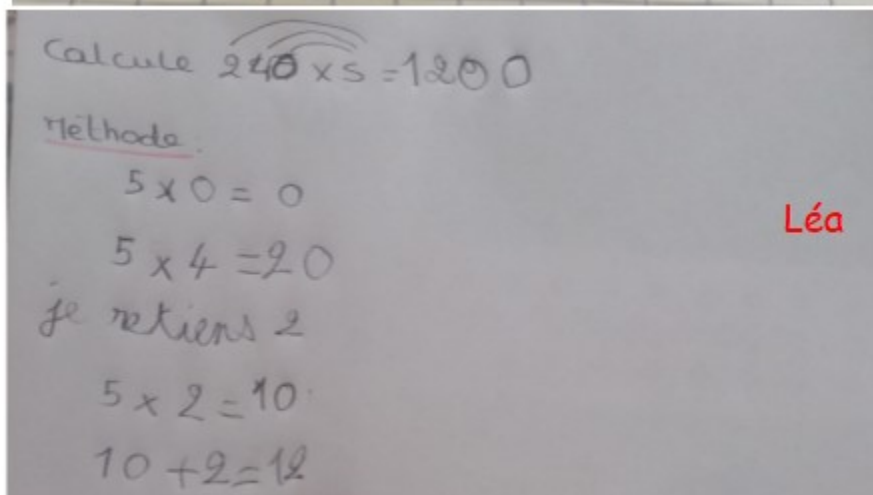 Calcule 240 x 5 = 1200
Méthode.
5 x 0 = 0
5 x 4 = 20
Léa
je retiens 2
5 x 2 = 10
10 + 2 = 12